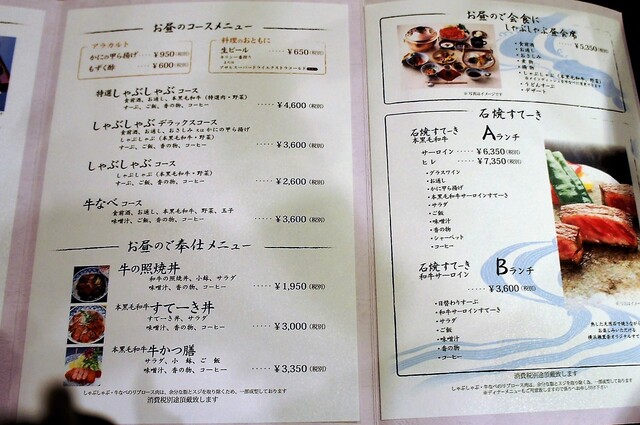 お昼のコースメニュー
アラカルト
かにの甲ら揚げ ¥950(税別)
もずく酢 ¥600(税別)
料理のおともに
生ビール ¥650(税別)
特選しゃぶしゃぶコース
食前酒、お通し、本黒毛和牛(特選肉・野菜)
すーぷ、ご飯、香の物、コーヒー
¥4,600(税別)
しゃぶしゃぶデラックスコース
食前酒、お通し、おさしみ 又は かにの甲ら揚げ
しゃぶしゃぶ(本黒毛和牛・野菜)
すーぷ、ご飯、香の物、コーヒー
¥3,600(税別)
しゃぶしゃぶコース
しゃぶしゃぶ(本黒毛和牛・野菜)
すーぷ、ご飯、香の物、コーヒー
¥2,600(税別)
牛なべコース
食前酒、お通し、本黒毛和牛、野菜、玉子
味噌汁、ご飯、香の物、コーヒー
¥3,600(税別)
お昼のご奉仕メニュー
牛の照焼丼
和牛の照焼丼、小鉢、サラダ
味噌汁、香の物、コーヒー
¥1,950(税別)
本黒毛和牛すてーき丼
すてーき丼、サラダ
味噌汁、香の物、コーヒー
¥3,000(税別)
本黒毛和牛牛かつ膳
サラダ、小鉢、ご飯
味噌汁、香の物、コーヒー
¥3,350(税別)
しゃぶしゃぶ・牛なべのリブロース肉は、余分な脂とスジを取り除くため、一部成型しております
消費税別途頂戴致します
お昼のご会食に
しゃぶしゃぶ昼会席
¥5,350(税別)
・食前酒
・お通し
・おさしみ
・煮物
・揚物
・しゃぶしゃぶ(本黒毛和牛、野菜)
・うどんすーぷ
・デザート
※写真はイメージです
石焼すてーき
本黒毛和牛
Aランチ
サーロイン ¥6,350(税別)
ヒレ ¥7,350(税別)
・グラスワイン
・お通し
・かに甲ら揚げ
・本黒毛和牛サーロインすてーき
・サラダ
・ご飯
・味噌汁
・香の物
・シャーベット
・コーヒー
石焼すてーき
和牛サーロイン
Bランチ
¥3,600(税別)
・日替わりすーぷ
・和牛サーロインすてーき
・サラダ
・ご飯
・味噌汁
・香の物
・コーヒー
熱した天然石で焼きながら
お楽しみいただける
消費税別途頂戴致します
しゃぶしゃぶ・牛なべのリブロース肉は、余分な脂とスジを取り除くため、一部成型しております